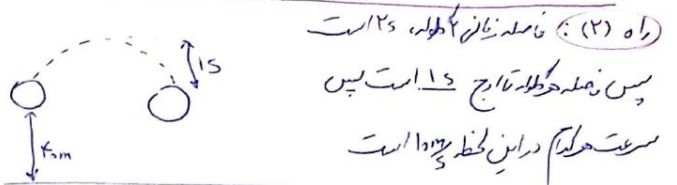 راه (۲): فاصله زمانی ۲ گلوله، ۲s است
پس فاصله هر گلوله تا اوج ۱s است پس
سرعت هر کدام در این لحظه ۱۰m/s است
۱s
۴۰m